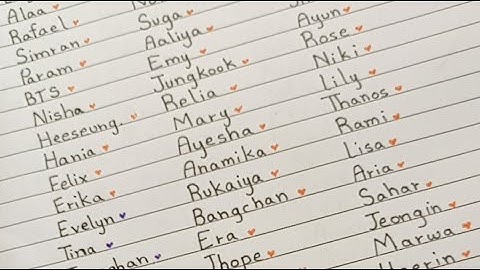 Alaa
Rafael
Simran
Param
BTS
Nisha
Heeseung.
Hania
Felix
Erika
Evelyn
Tina
Suga
Aaliya
Emy
Jungkook
Relia
Mary
Ayesha
Anamika
Rukaiya
Bangchan
Era
Jhope
Ayun
Rose
Niki
Lily
Thanos
Rami
Lisa
Aria
Sahar
Jeongin
Marwa